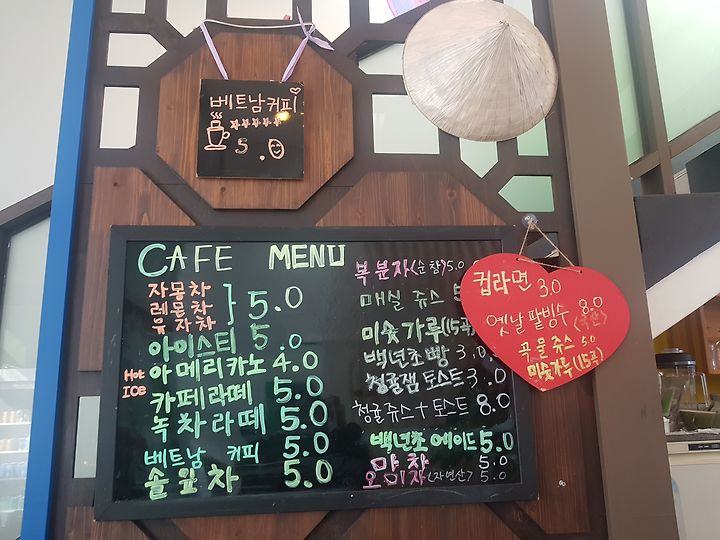 베트남커피
5.0
CAFE MENU
자몽차
레몬차
유자차
5.0
아이스티 5.0
HOT
ICE
아메리카노 4.0
카페라떼 5.0
녹차라떼 5.0
베트남 커피 5.0
솔잎차 5.0
복분자(순창)5.0
매실 쥬스 5
미숫가루(15곡)
백년초빵 3.0
청귤잼 토스트 3.0
청귤쥬스+토스트 8.0
백년초에이드 5.0
5.0
오미자(자연산) 5.0
컵라면
3.0
옛날팥빙수 8.0
곡물쥬스 5.0
미숫가루(15곡)